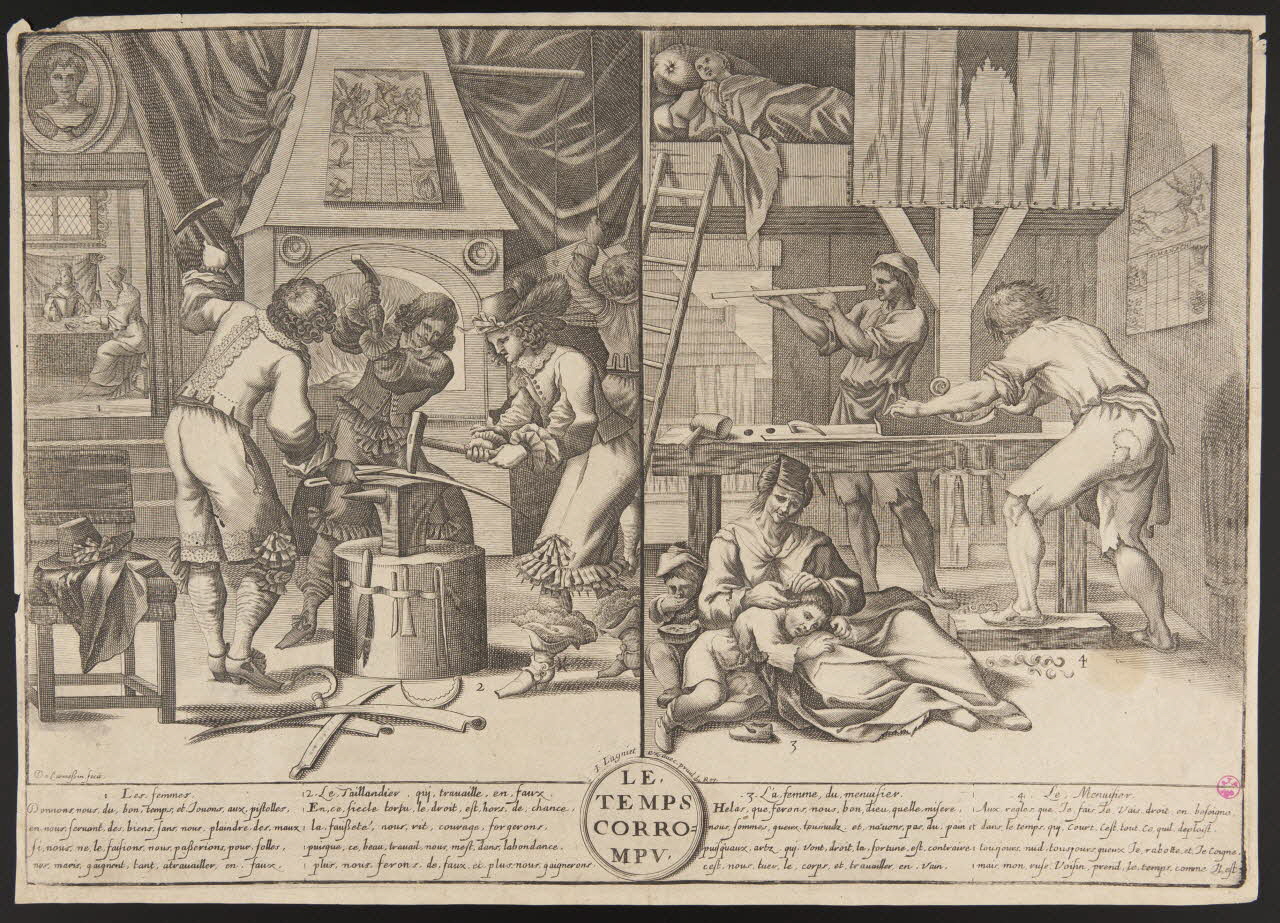 De Larmessin fecit
I. Lagniet ex. avec privil. du Roy.
LE.
TEMPS
CORRO=
MPV.
1 Les femmes.
Donnons nous, du, bon, temps, et Jouons, aux, pistolles,
en nous, seruant, des biens, sans, nous, plaindre, des, maux
si, nous, ne, le, faisions, nous, passerions, pour, folles,
nos, maris, gaignent, tant, atrauailler, en, faux.
2. Le Taillandier, qui, trauaille, en, faux.
En, ce, siecle, tortu, le, droit, est, hors, de, chance,
la, fausseté, nous, rit, courage, forgerons,
puisque, ce, beau, trauail, nous, mest, dans, labondance,
plus, nous, ferons, de, faux, et plus, nous, gaignerons
3. La femme, du, menuisier.
Helas, que, ferons, nous, bon, dieu, quelle, misere,
nous, sommes, gueux, et, nauons, pas, du, pain
puisquaux, artz, qui, vont, droit, la, fortune, est, contraire
cest, nous, tuer, le, corps, et, trauailler, en, vain.
4. Le, Menuisier.
Aux, regles, que, Je, fais, Je, Vais, droit, en, besoigne
et dans, le, temps, qui, Court, Cest, tout, ce, quil, deploist,
toujours, nud, tousjours, gueux, Je, rabotte, et, Je, Coigne
mais, mon, rusé, Voisin, prend, le, temps, comme, Il, est
1
2
3
4